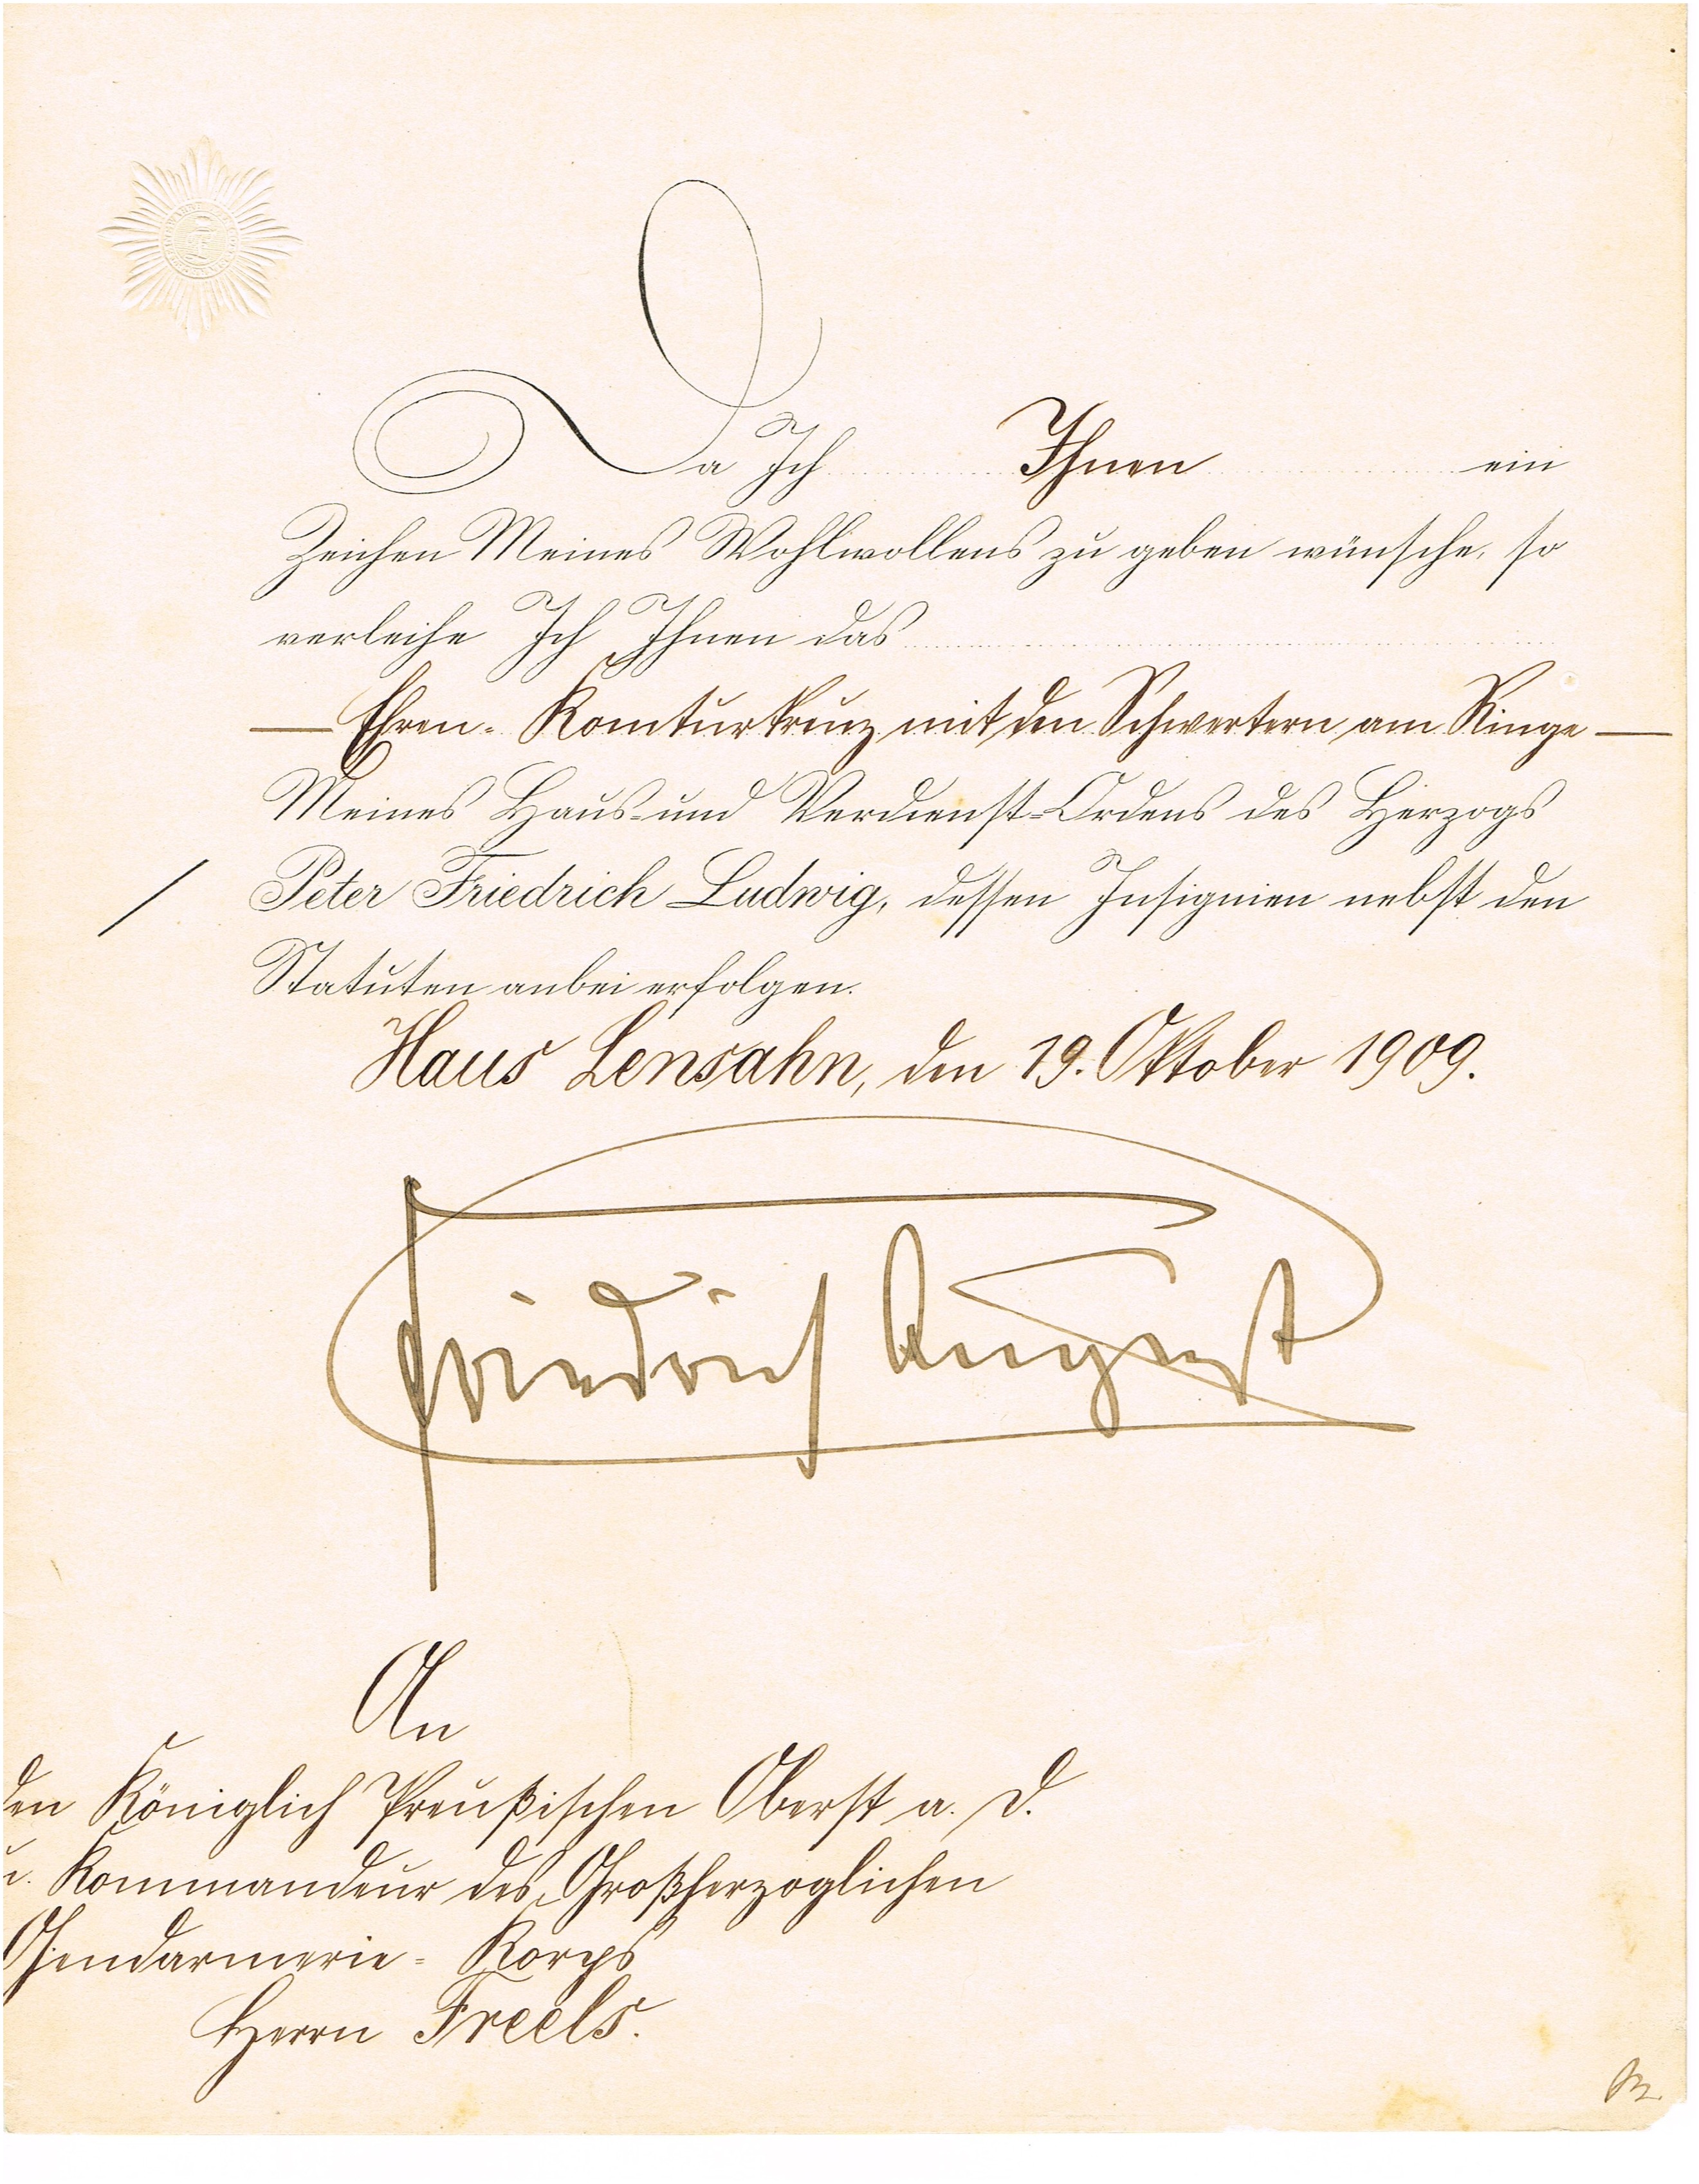 Da Ich Ihnen ein
Zeichen Meines Wohlwollens zu geben wünsche, so
verleihe Ich Ihnen das
— Ehren-Komturkreuz mit den Schwertern am Ringe —
Meines Haus- und Verdienst-Ordens des Herzogs
Peter Friedrich Ludwig, dessen Insignien nebst den
Statuten anbei erfolgen.
Haus Lensahn, den 19. Oktober 1909.
Friedrich August
An
den Königlich Preußischen Oberst a. D.
u. Kommandeur des Großherzoglichen
Gendarmerie-Korps
Herrn Freels.